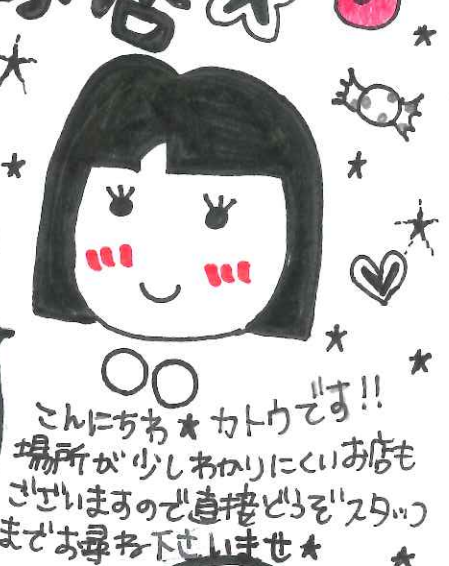 店
こんにちわ★カトウです!!
場所が少しわかりにくいお店も
ございますので直接どうぞスタッフ
までお尋ね下さいませ★